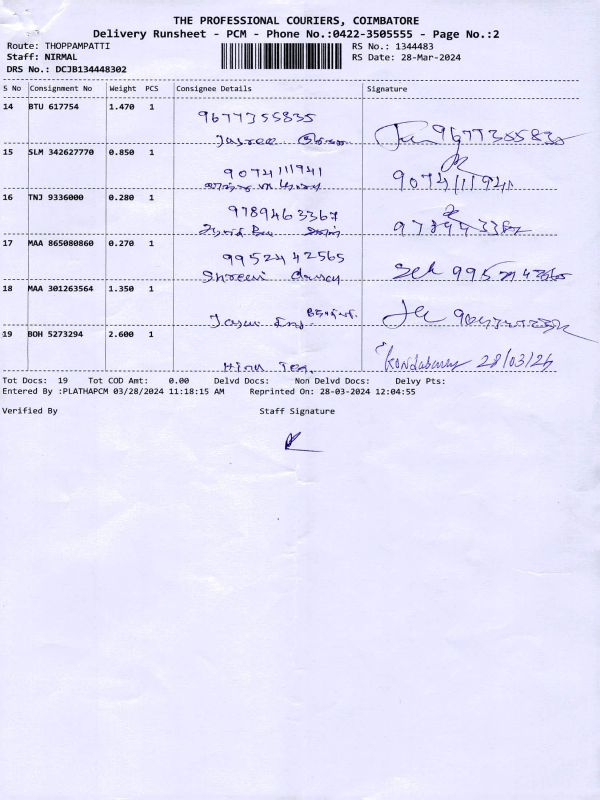 THE PROFESSIONAL COURIERS, COIMBATORE
Delivery Runsheet - PCM - Phone No.:0422-3505555 - Page No.:2
Route: THOPPAMPATTI
RS No.: 1344483
Staff: NIRMAL
RS Date: 28-Mar-2024
DRS No.: DCJB134448302
S No Consignment No Weight PCS Consignee Details Signature
14 BTU 617754 1.470 1
9677355835
15 SLM 342627770 0.850 1
9074111941 9074111941
16 TNJ 9336000 0.280 1
9789463367
17 MAA 865080860 0.270 1
9952442565
18 MAA 301263564 1.350 1
19 BOH 5273294 2.600 1
28/03/24
Tot Docs: 19 Tot COD Amt: 0.00 Delvd Docs: Non Delvd Docs: Delvy Pts:
Entered By :PLATHAPCM 03/28/2024 11:18:15 AM Reprinted On: 28-03-2024 12:04:55
Verified By Staff Signature